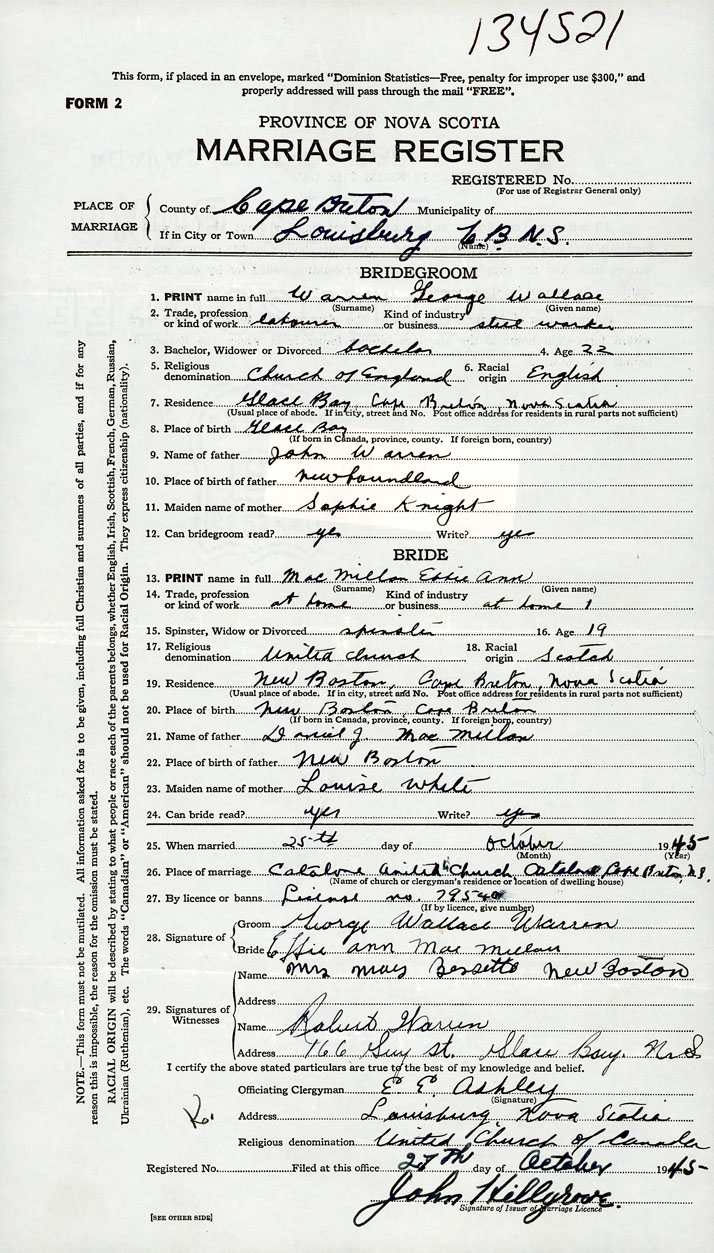 134521
This form, if placed in an envelope, marked "Dominion Statistics—Free, penalty for improper use $300," and
properly addressed will pass through the mail "FREE".
FORM 2
PROVINCE OF NOVA SCOTIA
MARRIAGE REGISTER
REGISTERED No.
(For use of Registrar General only)
PLACE OF MARRIAGE
County of Cape Breton Municipality of
If in City or Town Louisburg C.B. N.S.
(Name)
BRIDEGROOM
1. PRINT name in full Warren George Wallace
(Surname) (Given name)
2. Trade, profession or kind of work labourer Kind of industry or business steel worker
3. Bachelor, Widower or Divorced bachelor 4. Age 22
5. Religious denomination Church of England 6. Racial origin English
7. Residence Glace Bay, Cape Breton, Nova Scotia
(Usual place of abode. If in city, street and No. Post office address for residents in rural parts not sufficient)
8. Place of birth Glace Bay
(If born in Canada, province, county. If foreign born, country)
9. Name of father John Warren
10. Place of birth of father Newfoundland
11. Maiden name of mother Sophie Knight
12. Can bridegroom read? yes Write? yes
BRIDE
13. PRINT name in full Mac Millan Effie Ann
(Surname) (Given name)
14. Trade, profession or kind of work at home Kind of industry or business at home
15. Spinster, Widow or Divorced spinster 16. Age 19
17. Religious denomination United Church 18. Racial origin Scotch
19. Residence New Boston, Cape Breton, Nova Scotia
(Usual place of abode. If in city, street and No. Post office address for residents in rural parts not sufficient)
20. Place of birth New Boston Cape Breton
(If born in Canada, province, county. If foreign born, country)
21. Name of father Daniel J. Mac Millan
22. Place of birth of father New Boston
23. Maiden name of mother Louise White
24. Can bride read? yes Write? yes
25. When married 25-th day of October 1945
(Month) (Year)
26. Place of marriage Catalone United Church, Catalone Cape Breton, N.S.
(Name of church or clergyman's residence or location of dwelling house)
27. By licence or banns License no. 79540
(If by licence, give number)
28. Signature of
Groom George Wallace Warren
Bride Effie Ann Mac Millan
29. Signatures of Witnesses
Name Mrs Mary New Boston
Address
Name Robert Warren
Address 166 Guy St. Glace Bay. N.S
I certify the above stated particulars are true to the best of my knowledge and belief.
Officiating Clergyman E. E. Ashley
(Signature)
Address Louisburg, Nova Scotia
Religious denomination United Church of Canada
Registered No. Filed at this office 27th day of October 1945
John Hillgrove.
Signature of Issuer of Marriage Licence
[SEE OTHER SIDE]
NOTE.—This form must not be mutilated. All information asked for is to be given, including full Christian and surnames of all parties, and if for any
reason this is impossible, the reason for the omission must be stated.
RACIAL ORIGIN will be described by stating to what people or race each of the parents belongs, whether English, Irish, Scottish, French, German, Russian,
Ukrainian (Ruthenian), etc. The words "Canadian" or "American" should not be used for Racial Origin. They express citizenship (nationality).